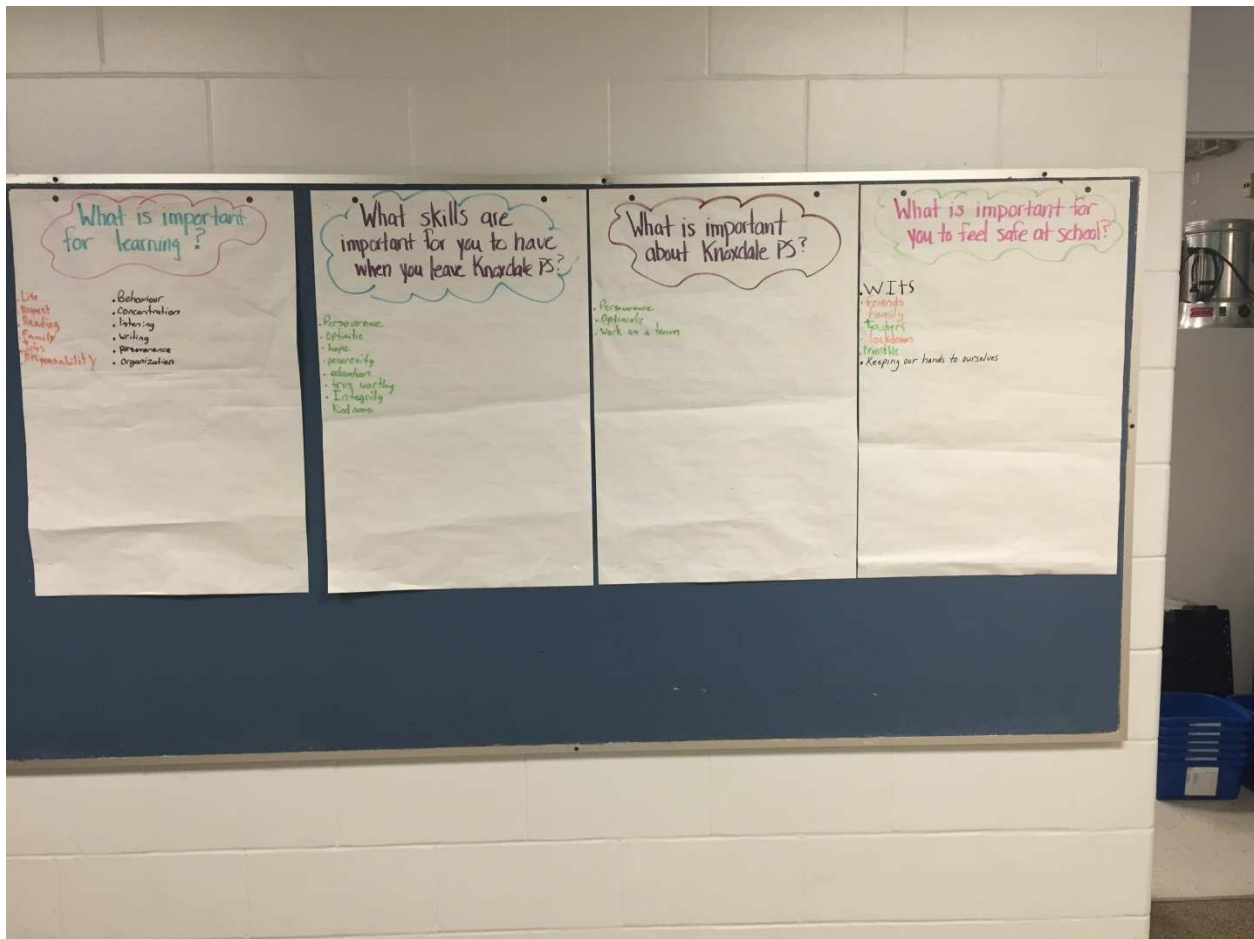 What is important
for learning?
. Life
. Respect
. Reading
. Family
. Jobs
. Responsability
. Behaviour
. Concentration
. listening
. writing
. perseverence
. organization
What skills are
important for you to have
when you leave Knoxdale PS?
. Perseverence
. Optimistic
. hope
. generosity
. education
. trug worthy
. Integrity
. Kindness
What is important
about Knoxdale PS?
. Perserverance
. Optimistic
. Work as a team
What is important for
you to feel safe at school?
. WITS
. friends
. family
. teachers
. lockdown
. Keeping our hands to ourselves